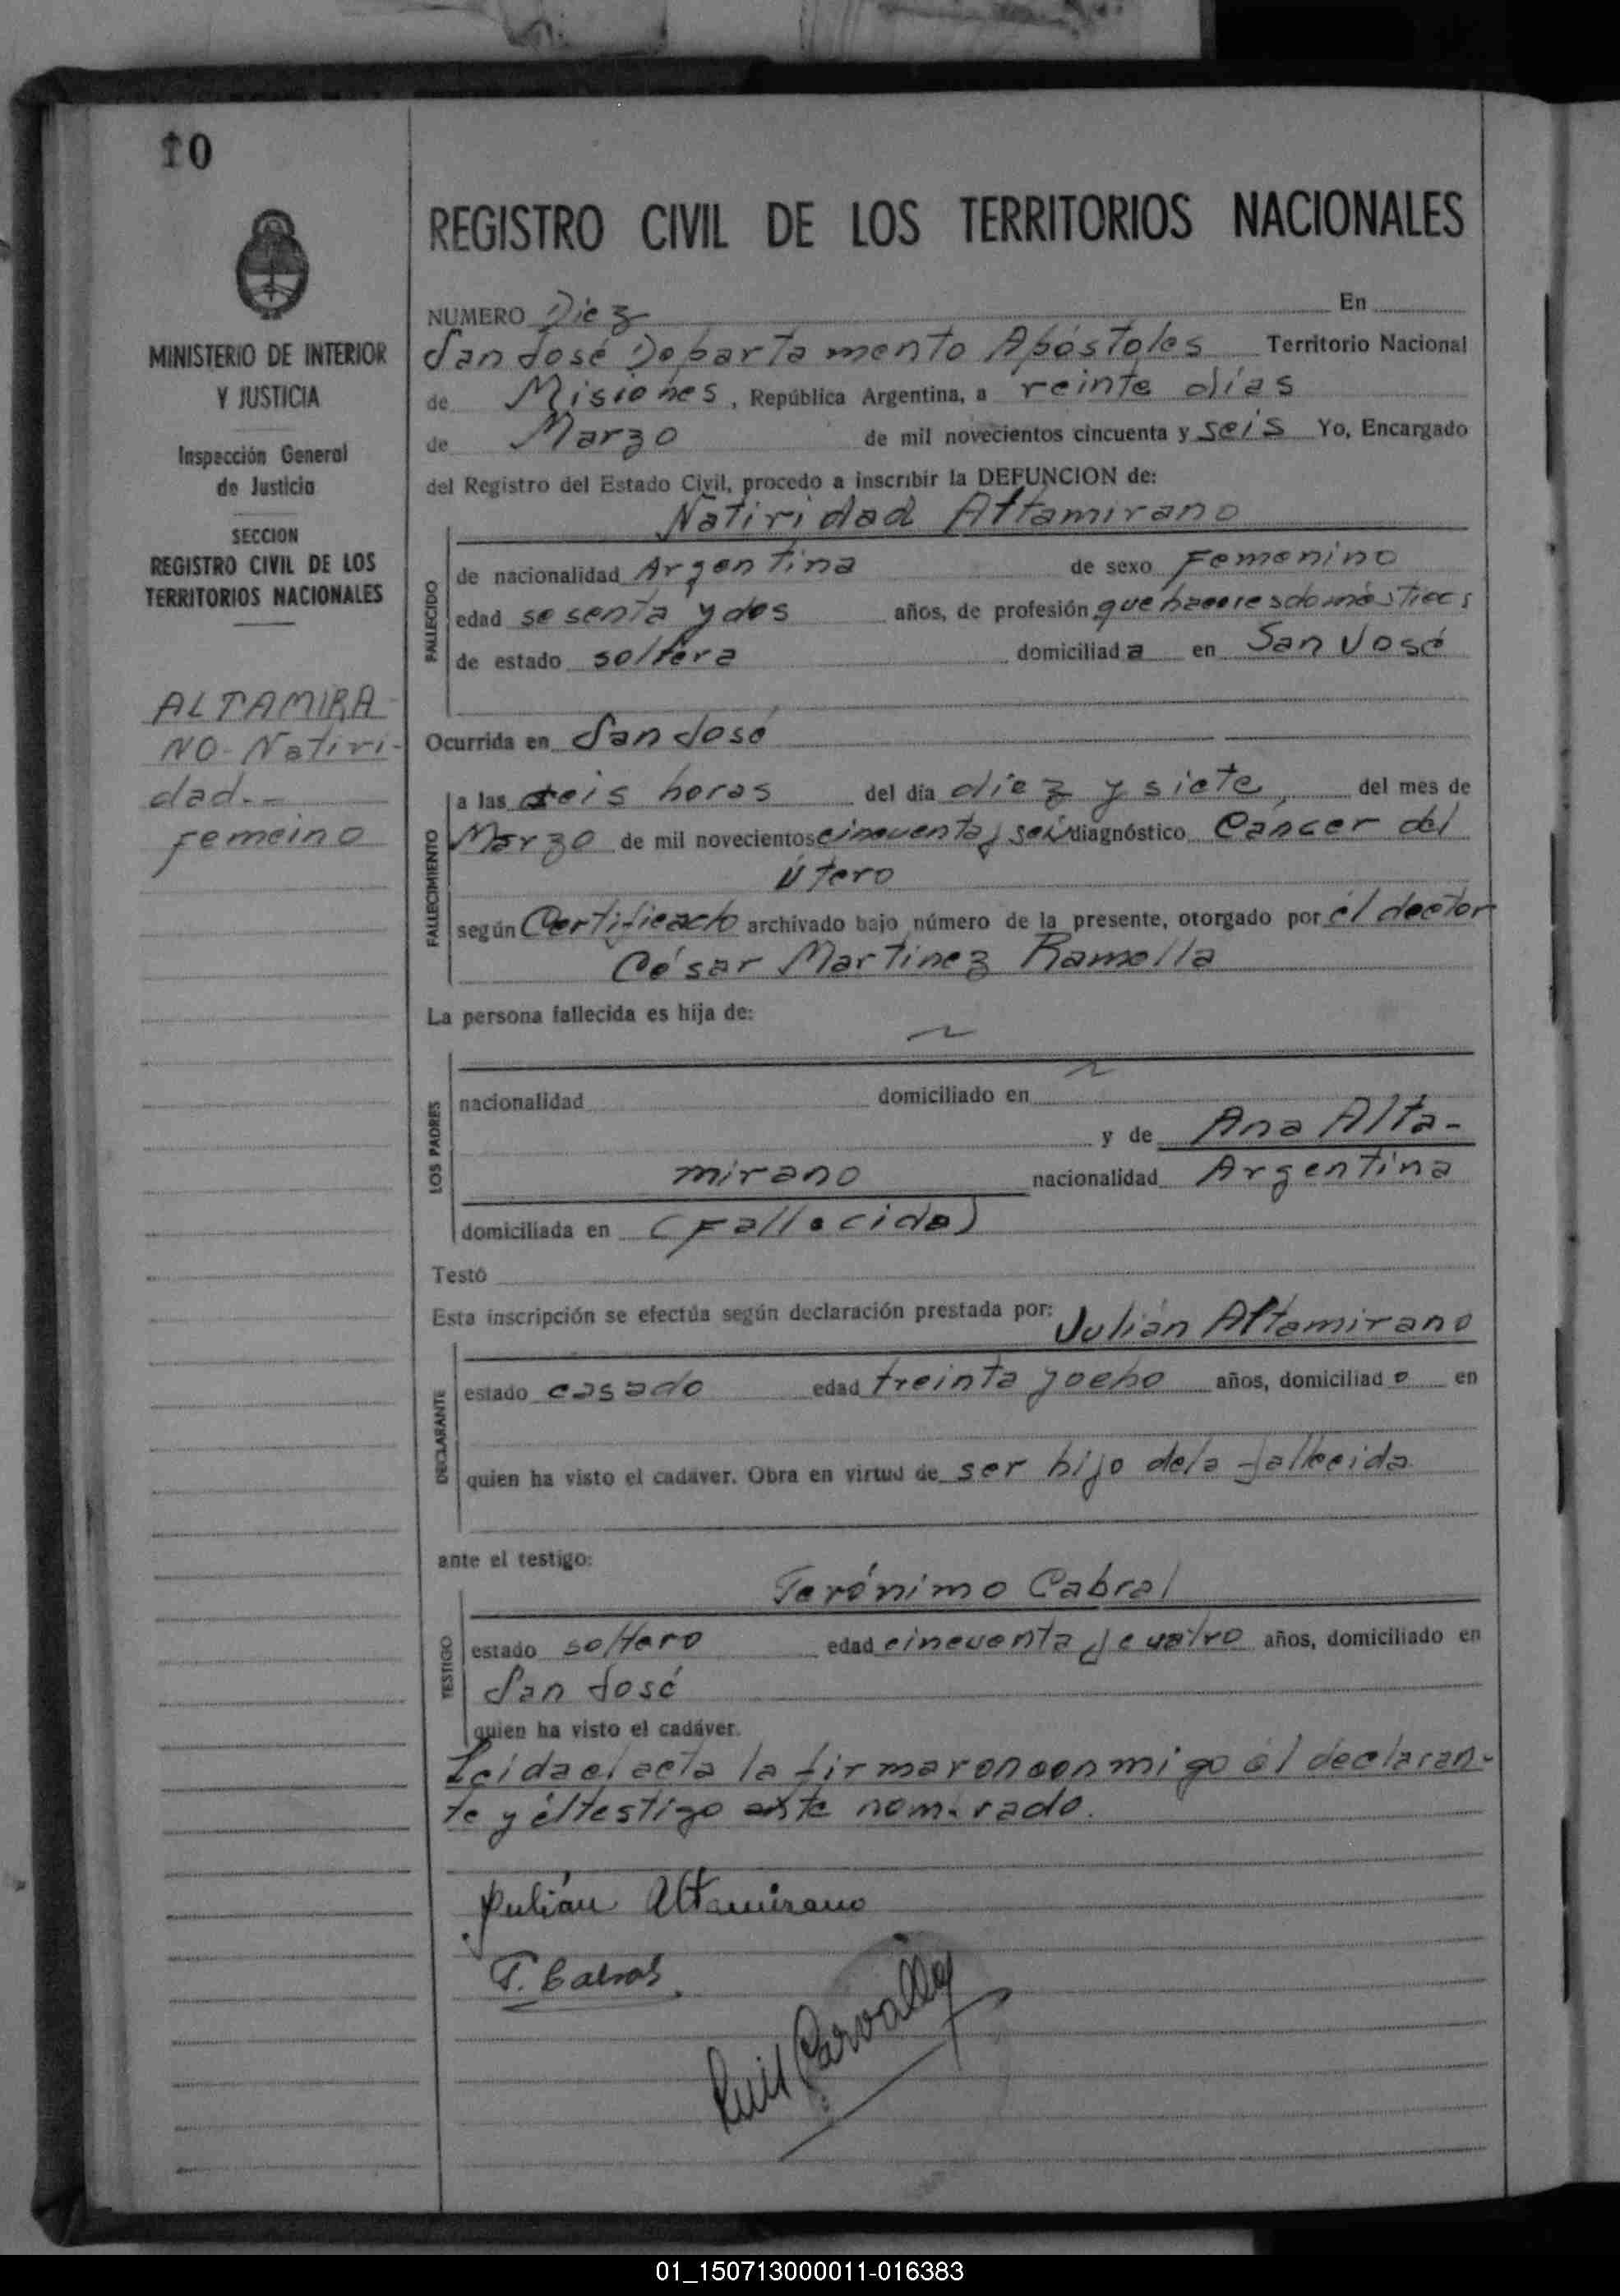 10
MINISTERIO DE INTERIOR
Y JUSTICIA
Inspección General
de Justicia
SECCION
REGISTRO CIVIL DE LOS
TERRITORIOS NACIONALES
ALTAMIRA
NO - Nativi-
dad.--
femeino
REGISTRO CIVIL DE LOS TERRITORIOS NACIONALES
NUMERO Diez En
San José Departamento Apóstoles Territorio Nacional
de Misiones, República Argentina, a veinte días
de Marzo de mil novecientos cincuenta y seis Yo, Encargado
del Registro del Estado Civil, procedo a inscribir la DEFUNCION de:
Natividad Altamirano
FALLECIDO
de nacionalidad Argentina de sexo Femenino
edad sesenta y dos años, de profesión que haceres domésticos
de estado soltera domiciliada en San José
Ocurrida en San José
FALLECIMIENTO
a las seis horas del día diez y siete, del mes de
Marzo de mil novecientos cincuenta y seis diagnóstico Cáncer del
Útero
según Certificado archivado bajo número de la presente, otorgado por él doctor
César Martinez Ramella
La persona fallecida es hija de:
LOS PADRES
nacionalidad domiciliado en
y de Ana Alta-
mirano nacionalidad Argentina
domiciliada en (Fallecida)
Testó
Esta inscripción se efectúa según declaración prestada por: Julián Altamirano
DECLARANTE
estado casado edad treinta y ocho años, domiciliado en
quien ha visto el cadáver. Obra en virtud de ser hijo de la fallecida
ante el testigo:
Terónimo Cabral
TESTIGO
estado soltero edad cincuenta y cuatro años, domiciliado en
San José
quien ha visto el cadáver.
Leída el acta la firmaron con migo él declaran-
te y él testigo ante nombrado.
Julián Altamirano
T. Cabral
Luis Carvallo
01_150713000011-016383